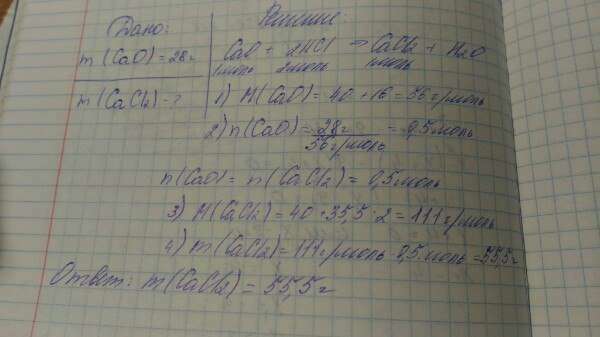 Дано:
m(CaO)=28г
m(CaCl2)-?
Решение:
CaO + 2HCl → CaCl2 + H2O
1моль 2моль 1моль
1) M(CaO) = 40 + 16 = 56 г/моль
2) n(CaO) = 28г / 56г/моль = 0,5 моль
n(CaO) = n(CaCl2) = 0,5 моль
3) M(CaCl2) = 40 + 35,5 · 2 = 111 г/моль
4) m(CaCl2) = 111 г/моль · 0,5 моль = 55,5г
Ответ: m(CaCl2) = 55,5г